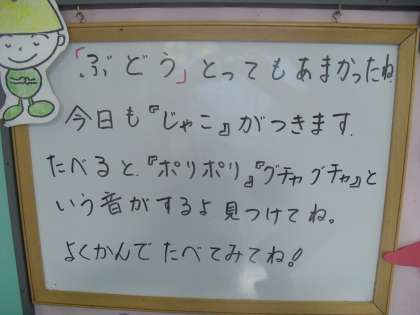 「ぶどう」とってもあまかったね
今日も『じゃこ』がつきます.
たべると.『ポリポリ』『グチャグチャ』と
いう音がするよ見つけてね。
よくかんでたべてみてね!